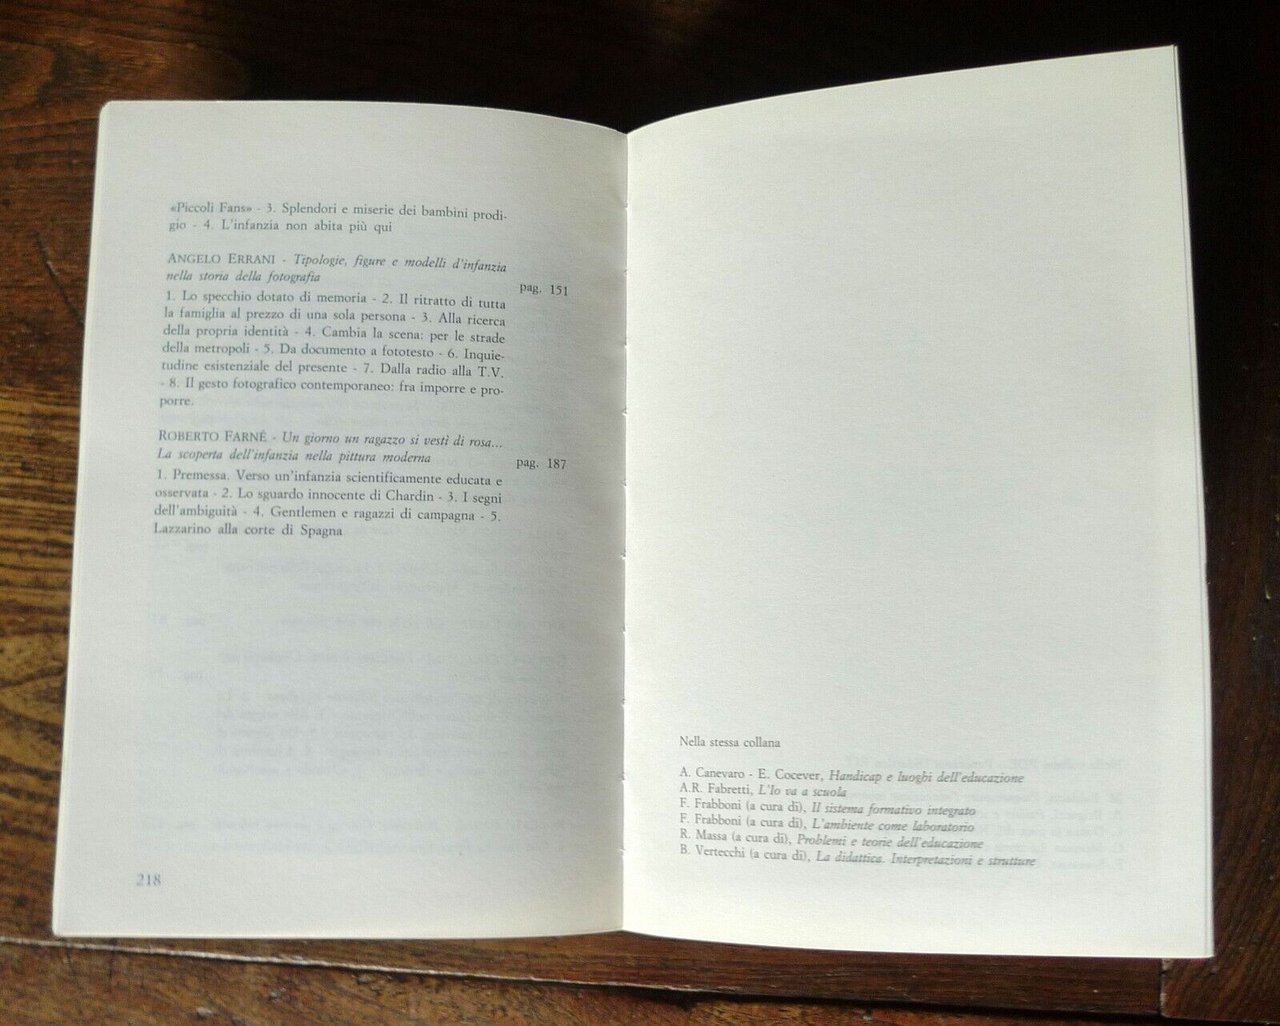 «Piccoli Fans» - 3. Splendori e miserie dei bambini prodi-
gio - 4. L'infanzia non abita più qui
ANGELO ERRANI - Tipologie, figure e modelli d'infanzia
nella storia della fotografia
pag. 151
1. Lo specchio dotato di memoria - 2. Il ritratto di tutta
la famiglia al prezzo di una sola persona - 3. Alla ricerca
della propria identità - 4. Cambia la scena: per le strade
della metropoli - 5. Da documento a fototesto - 6. Inquie-
tudine esistenziale del presente - 7. Dalla radio alla T.V.
- 8. Il gesto fotografico contemporaneo: fra imporre e pro-
porre.
ROBERTO FARNÉ - Un giorno un ragazzo si vestì di rosa...
La scoperta dell'infanzia nella pittura moderna
pag. 187
1. Premessa. Verso un'infanzia scientificamente educata e
osservata - 2. Lo sguardo innocente di Chardin - 3. I segni
dell'ambiguità - 4. Gentlemen e ragazzi di campagna - 5.
Lazzarino alla corte di Spagna
218
Nella stessa collana
A. Canevaro - E. Cocever, Handicap e luoghi dell'educazione
A.R. Fabretti, L'Io va a scuola
F. Frabboni (a cura di), Il sistema formativo integrato
F. Frabboni (a cura di), L'ambiente come laboratorio
R. Massa (a cura di), Problemi e teorie dell'educazione
B. Vertecchi (a cura di), La didattica. Interpretazioni e strutture